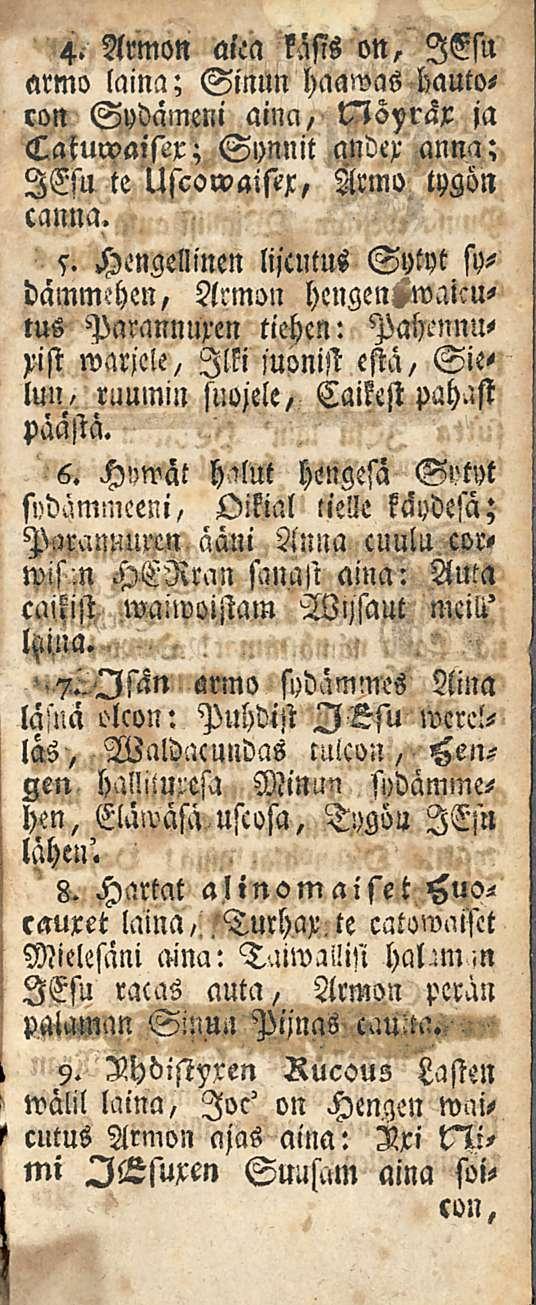 4. Armon aica käsis on, JEsu
armo laina; Sinun haawas hauto-
con Sydämeni aina, Nöyräx ja
Catuwaisex; Synnit andex anna;
JEsu te Uscowaisex, Armo tygön
canna.
5. Hengellinen lijcutus Sytyt sy-
dämmehen, Armon hengen waicu-
tus Parannuxen tiehen: Pahennu-
xist warjele, Ilki juonist estä, Sie-
lun, ruumin suojele, Caikest pahast
päästä.
6. Hywät halut hengesä Sytyt
sydämmeeni, Oikial tielle käydesä;
Parannuxen ääni Anna cuulu cor-
wisan HERran sanast aina: Auta
caikist waiwoistam Wijsaut meill'
laina.
7. Isän armo sydämmes Aina
läsnä olcon: Puhdist JEsu werel-
läs, Waldacundas tulcon, Hen-
gen hallituxesa Minun sydämme-
hen, Eläwäsä uscosa, Tygön JEsu
lähen'.
8. Hartat alinomaiset Huo-
cauxet laina, Turhax te catowaiset
Mielesäni aina: Taiwallisi halaman
JEsu racas auta, Armon perän
palaman Sinun Pijnas cautta.
9. Yhdistyxen Rucous Lasten
wälil laina, Joc' on Hengen wai-
cutus Armon ajas aina: Yxi Ni-
mi JEsuxen Suusam aina soi-
con,